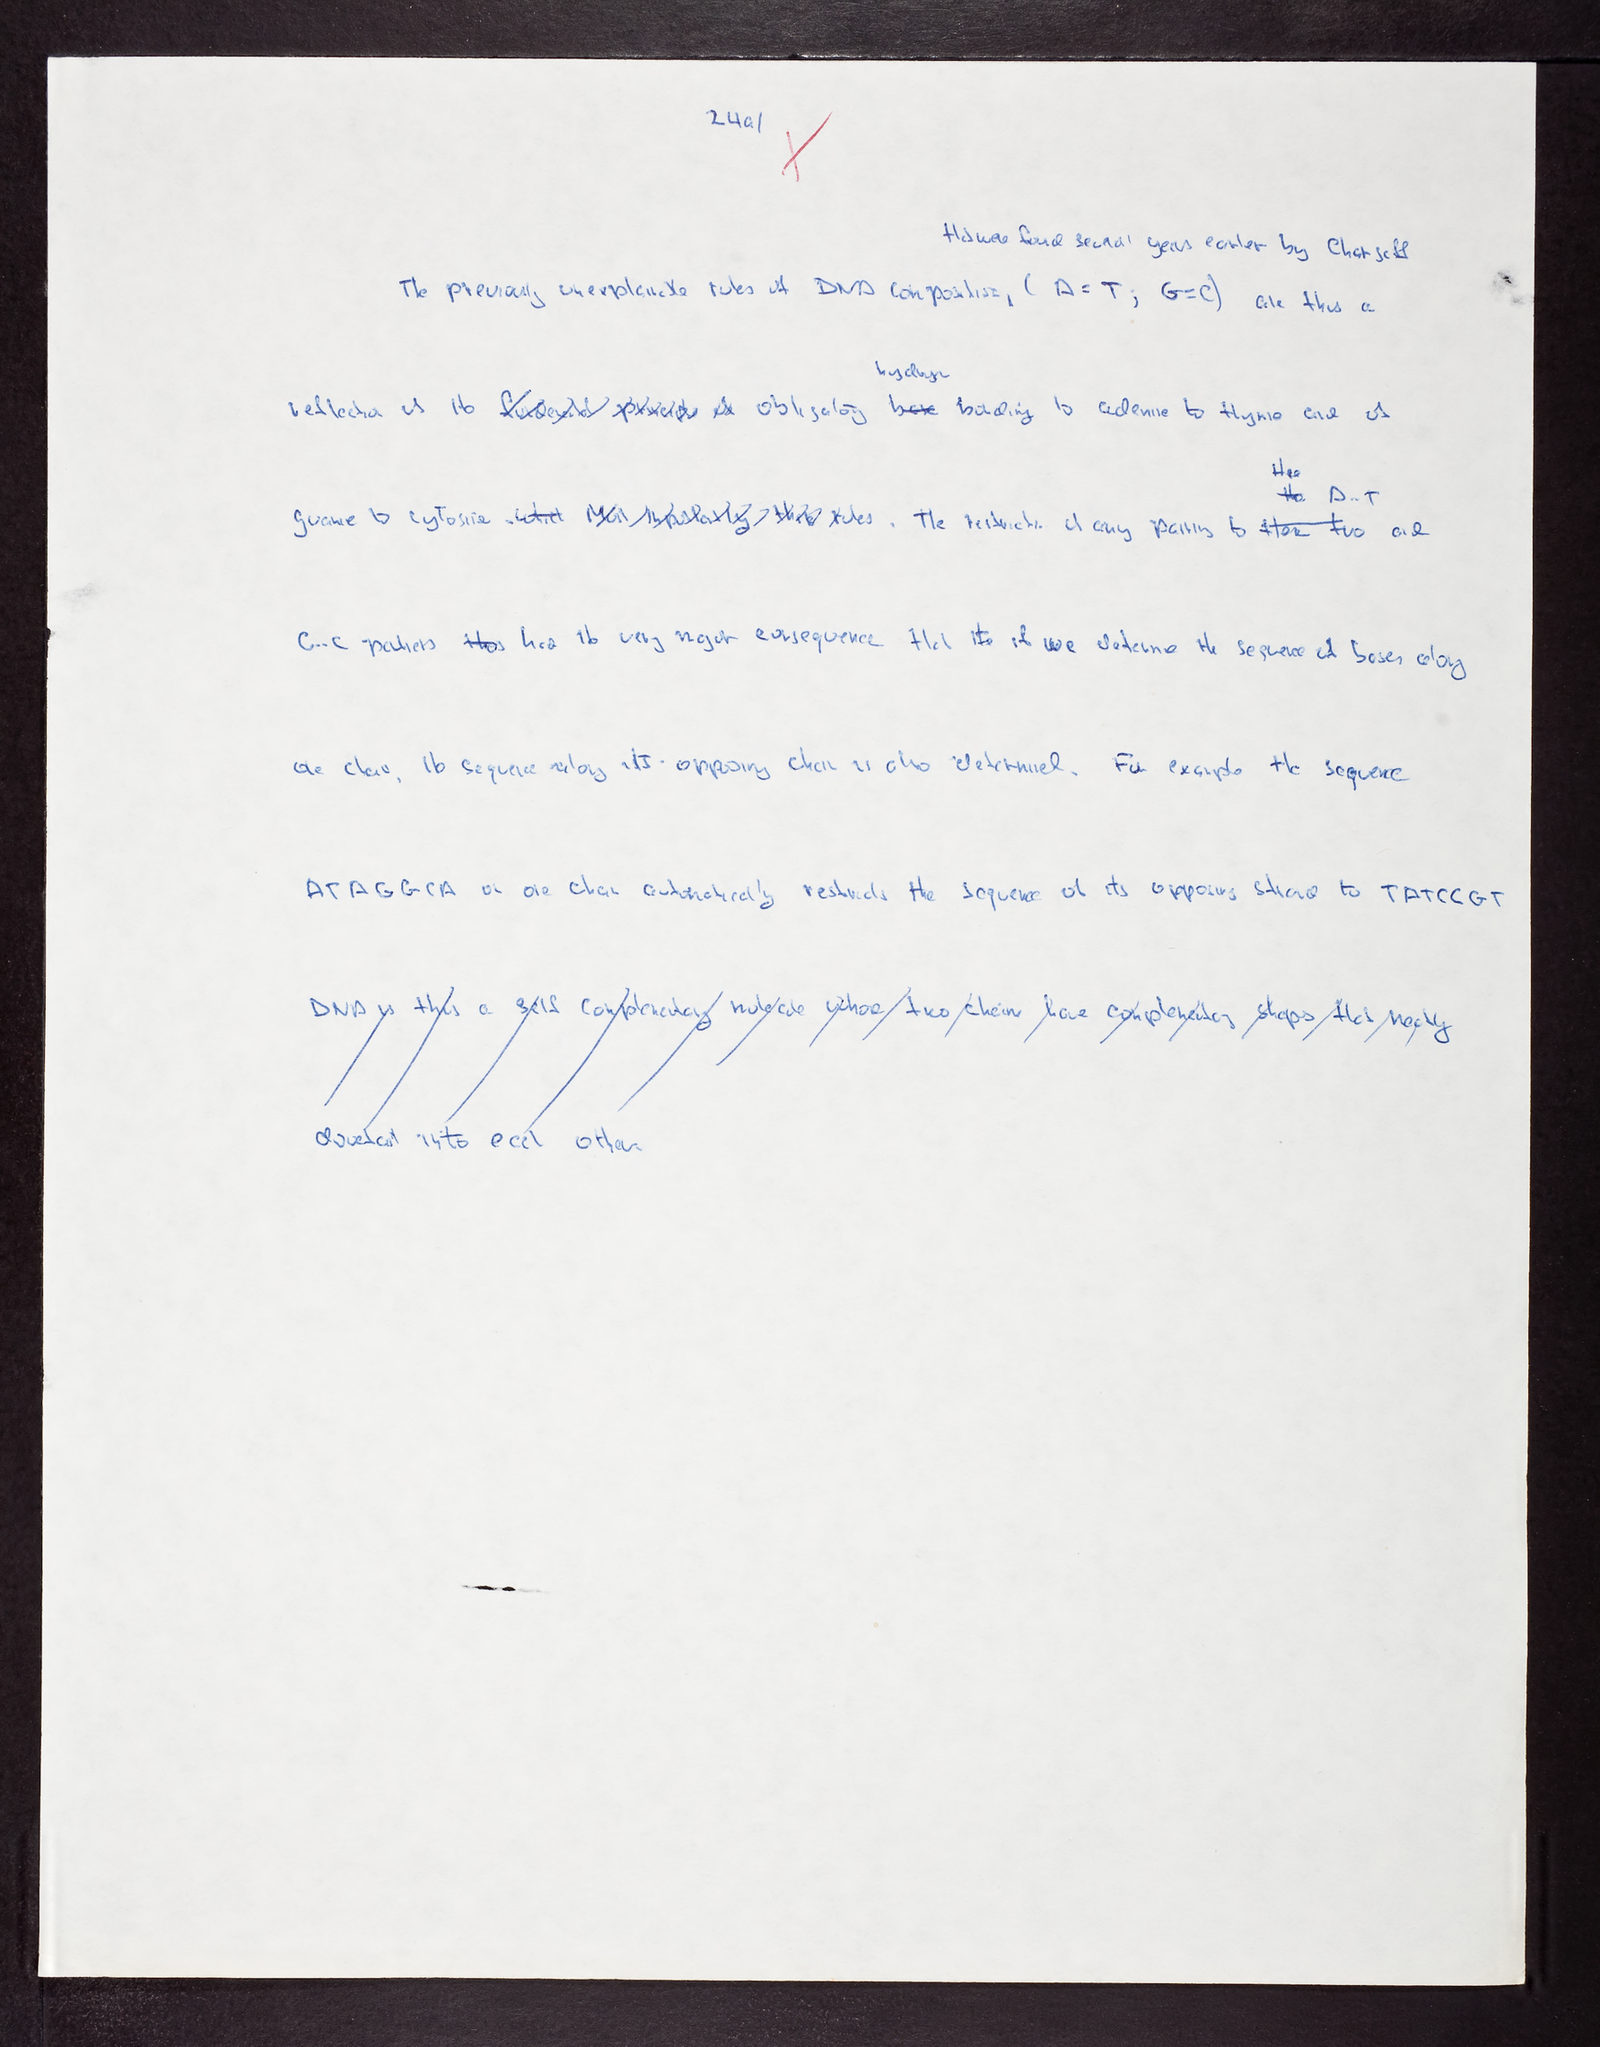 24a/
that were found several years earlier by Chargaff
The previously unexplainable rules of DNA composition, ( A = T ; G = C) are thus a
hydrogen
reflection of the fundamental principle of obligatory base bonding to adenine to thymine and of
the
the A..T
guanine to cytosine which Most importantly, these rules. The restriction of any pairing to these two and
G..C partners has the very major consequence that if we determine the sequence of bases along
one chain, the sequence along its opposing chain is also determined. For example the sequence
ATAGGCA on one chain automatically restricts the sequence of its opposing strand to TATCCGT
DNA is thus a self complementary molecule whose two chains have complementary shapes that neatly
into each other